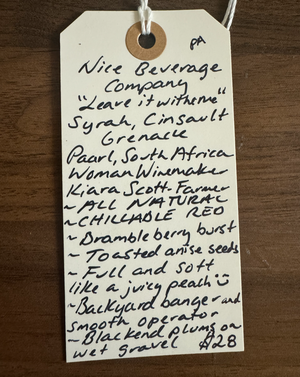 PA
Nice Beverage
Company
"Leave it with me"
Syrah, Cinsault
Grenache
Paarl, South Africa
Woman Winemaker
Kiara Scott-Farmer
~ ALL NATURAL
~ CHILLABLE RED
~ Brambleberry burst
~ Toasted anise seeds
~ Full and soft
like a juicy peach
~ Backyard banger and
smooth operator
~ Blackend plums on
wet gravel $28